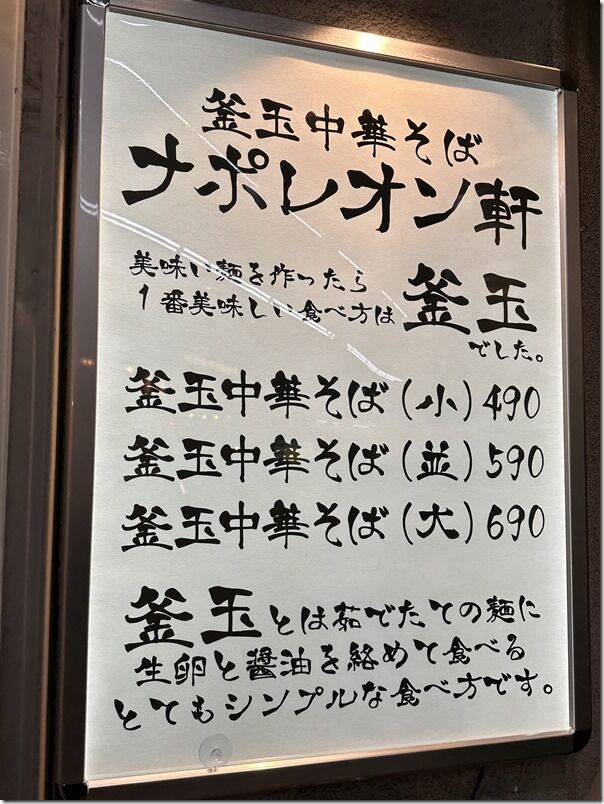 釜玉中華そば
ナポレオン軒
美味い麺を作ったら
1番美味しい食べ方は
釜玉
でした。
釜玉中華そば(小)490
釜玉中華そば(並)590
釜玉中華そば(大)690
釜玉とは茹でたての麺に
生卵と醤油を絡めて食べる
とてもシンプルな食べ方です。